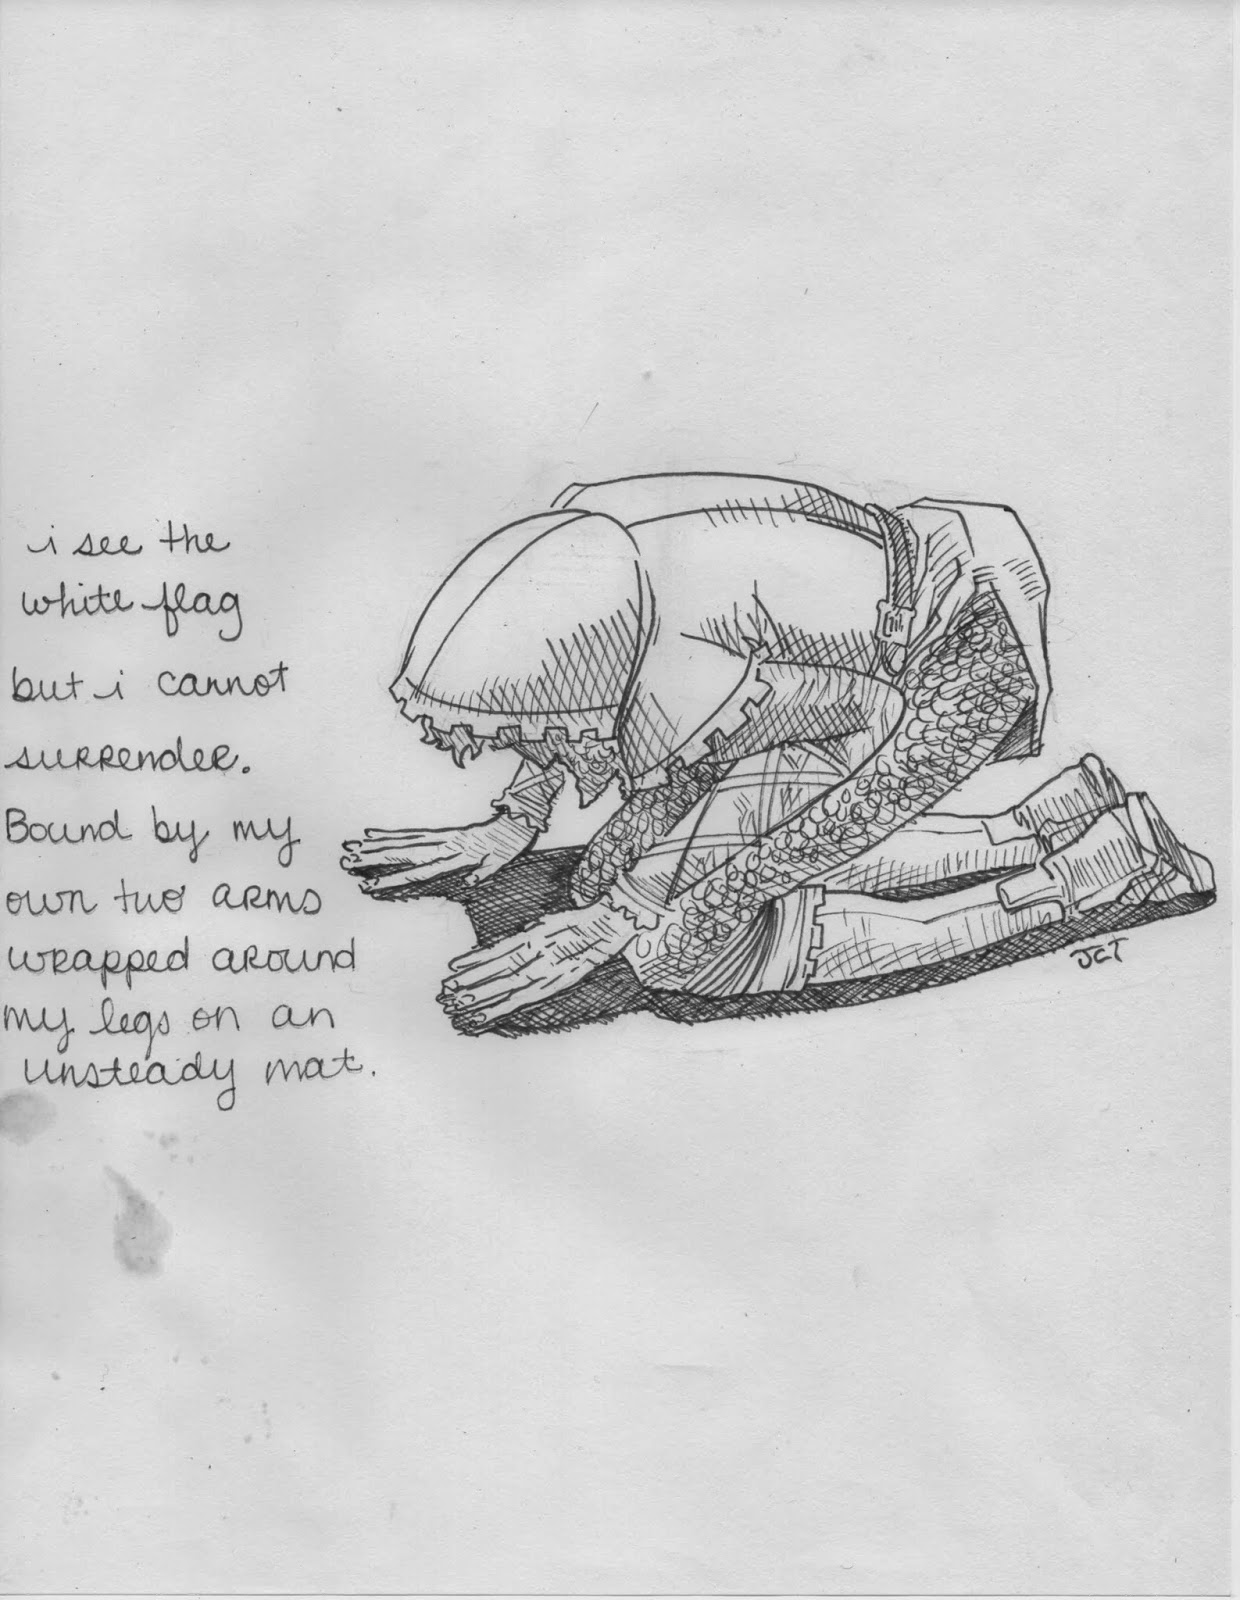 i see the
white flag
but i cannot
surrender.
Bound by my
own two arms
wrapped around
my legs on an
unsteady mat.
JCT